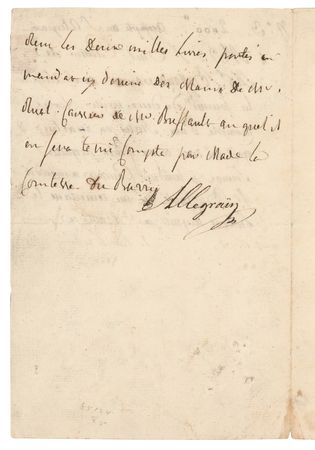 Reçu les Deux milles Livres portés au
mandat cy derrière Des Mains De Mr.
Caissier de Mr. Buffault auquel il
en sera tenu Compte par Made la
Comtesse Du Barry
Allegrain